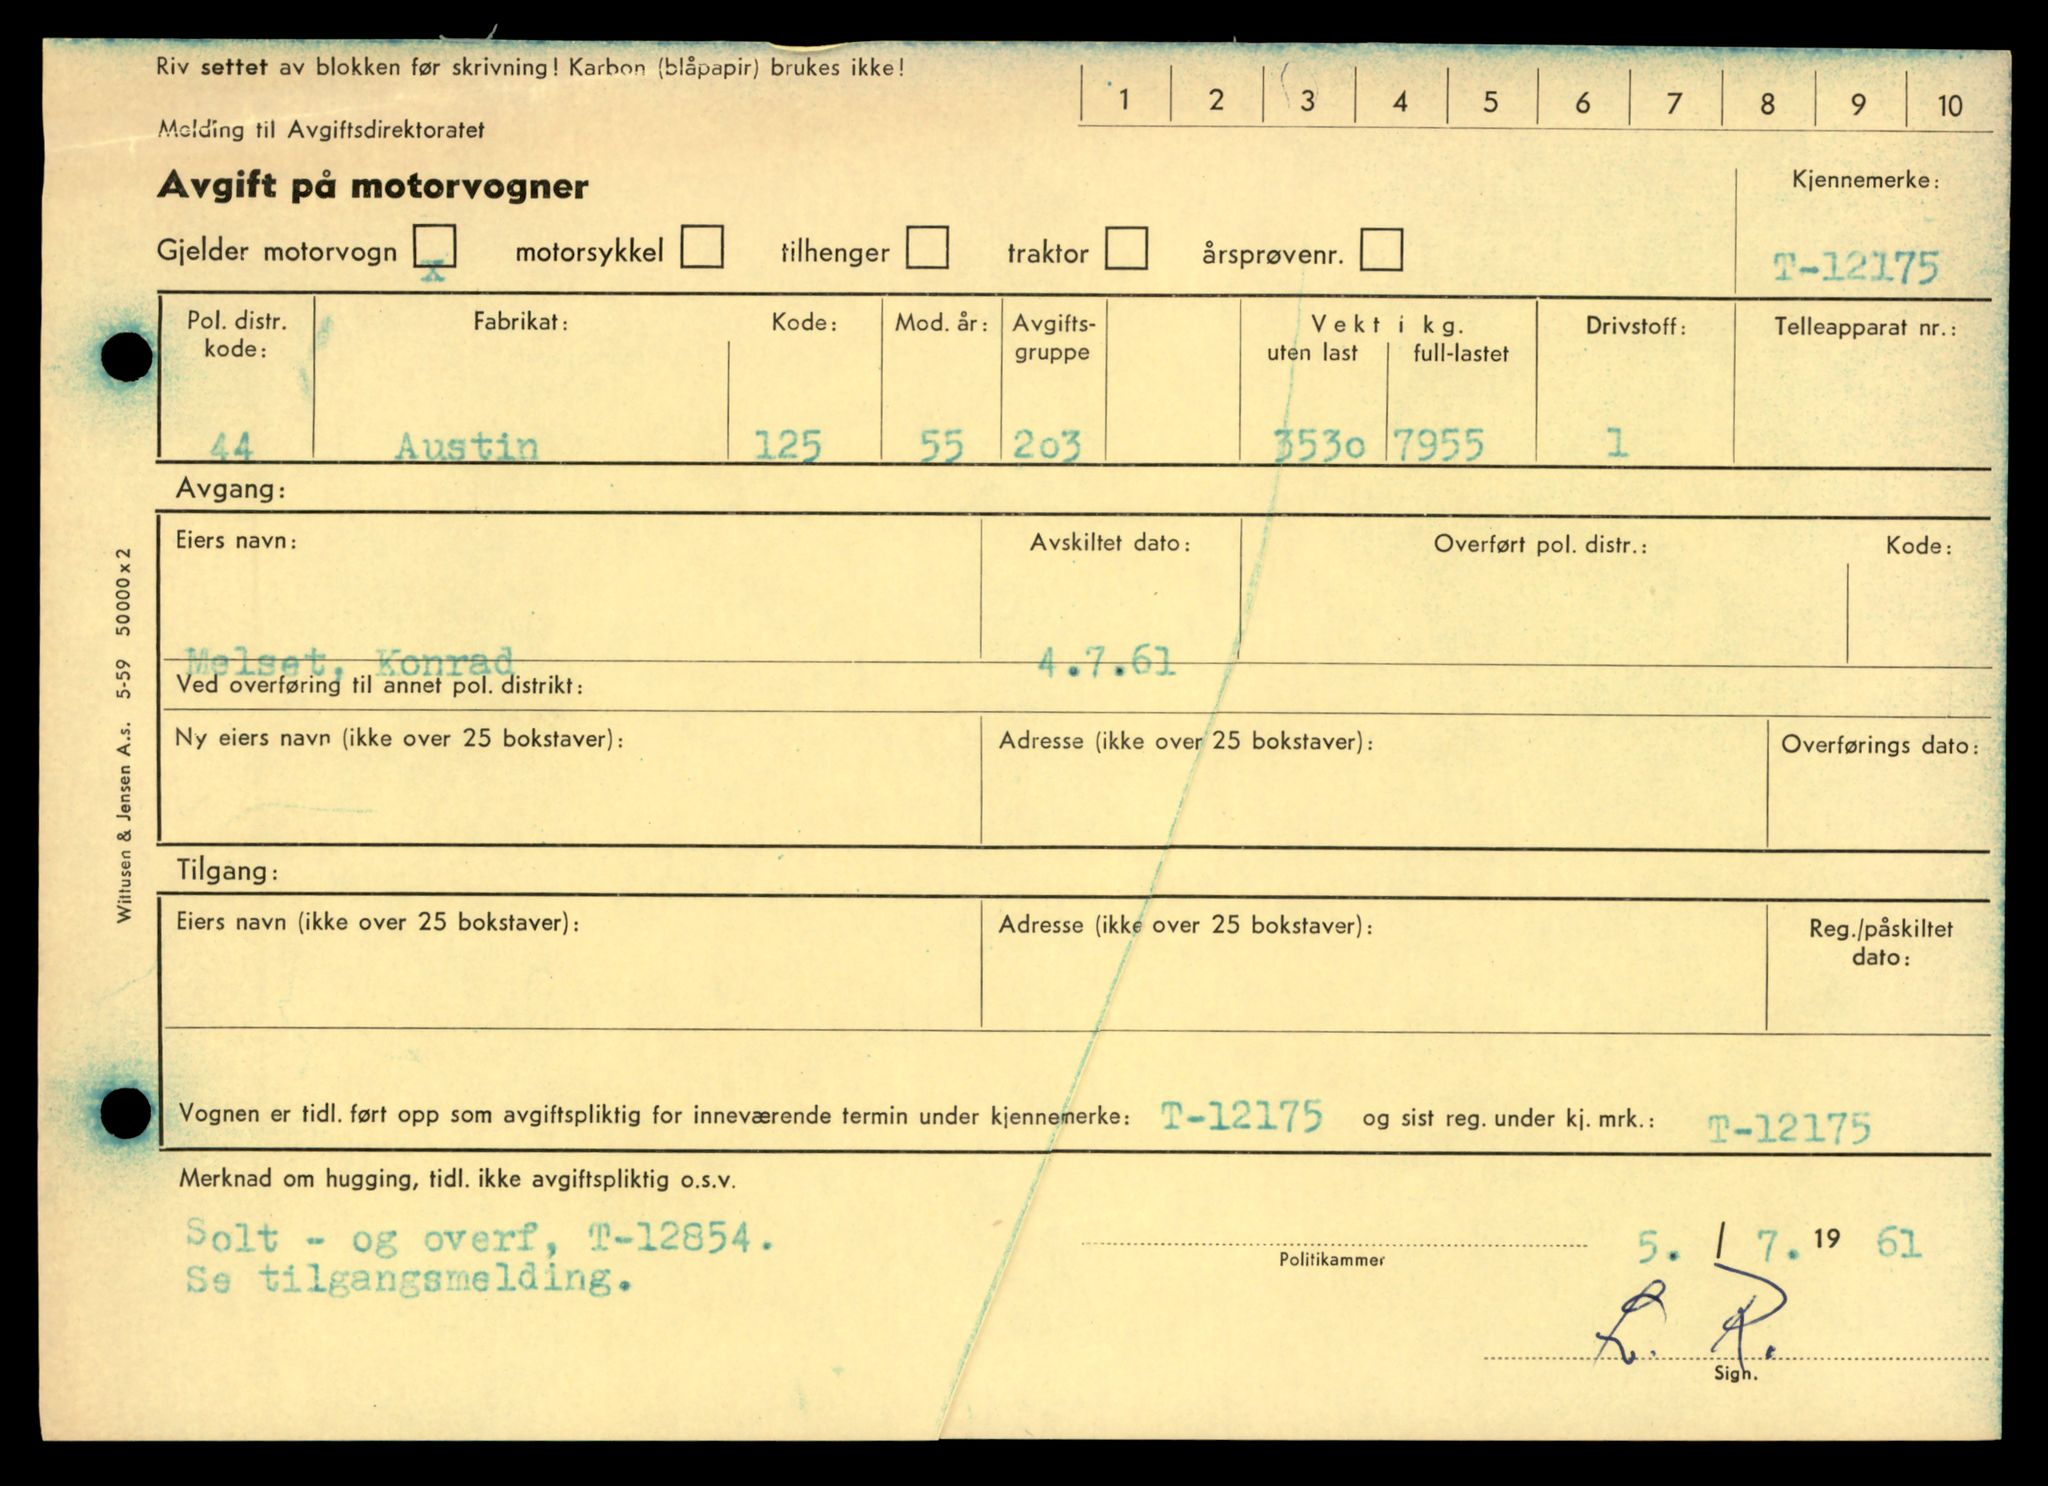 Riv settet av blokken før skrivning! Karbon (blåpapir) brukes ikke!
1 2 3 4 5 6 7 8 9 10
Melding til Avgiftsdirektoratet
Avgift på motorvogner
Kjennemerke:
Gjelder motorvogn x motorsykkel tilhenger traktor årsprøvenr.
T-12175
Pol. distr. kode: Fabrikat: Kode: Mod. år: Avgifts-gruppe Vekt i kg. uten last full-lastet Drivstoff: Telleapparat nr.:
44 Austin 125 55 2o3 353o 7955 1
Avgang:
Eiers navn: Avskiltet dato: Overført pol. distr.: Kode:
Melset, Konrad 4.7.61
Ved overføring til annet pol. distrikt:
Ny eiers navn (ikke over 25 bokstaver): Adresse (ikke over 25 bokstaver): Overførings dato:
Tilgang:
Eiers navn (ikke over 25 bokstaver): Adresse (ikke over 25 bokstaver): Reg./påskiltet dato:
Vognen er tidl. ført opp som avgiftspliktig for inneværende termin under kjennemerke: T-12175 og sist reg. under kj. mrk.: T-12175
Merknad om hugging, tidl. ikke avgiftspliktig o.s.v.
Solt - og overf, T-12854.
Se tilgangsmelding.
Politikammer
5. / 7. 19 61
L. R.
Sign.
Wittusen & Jensen A.s. 5-59 50000x2